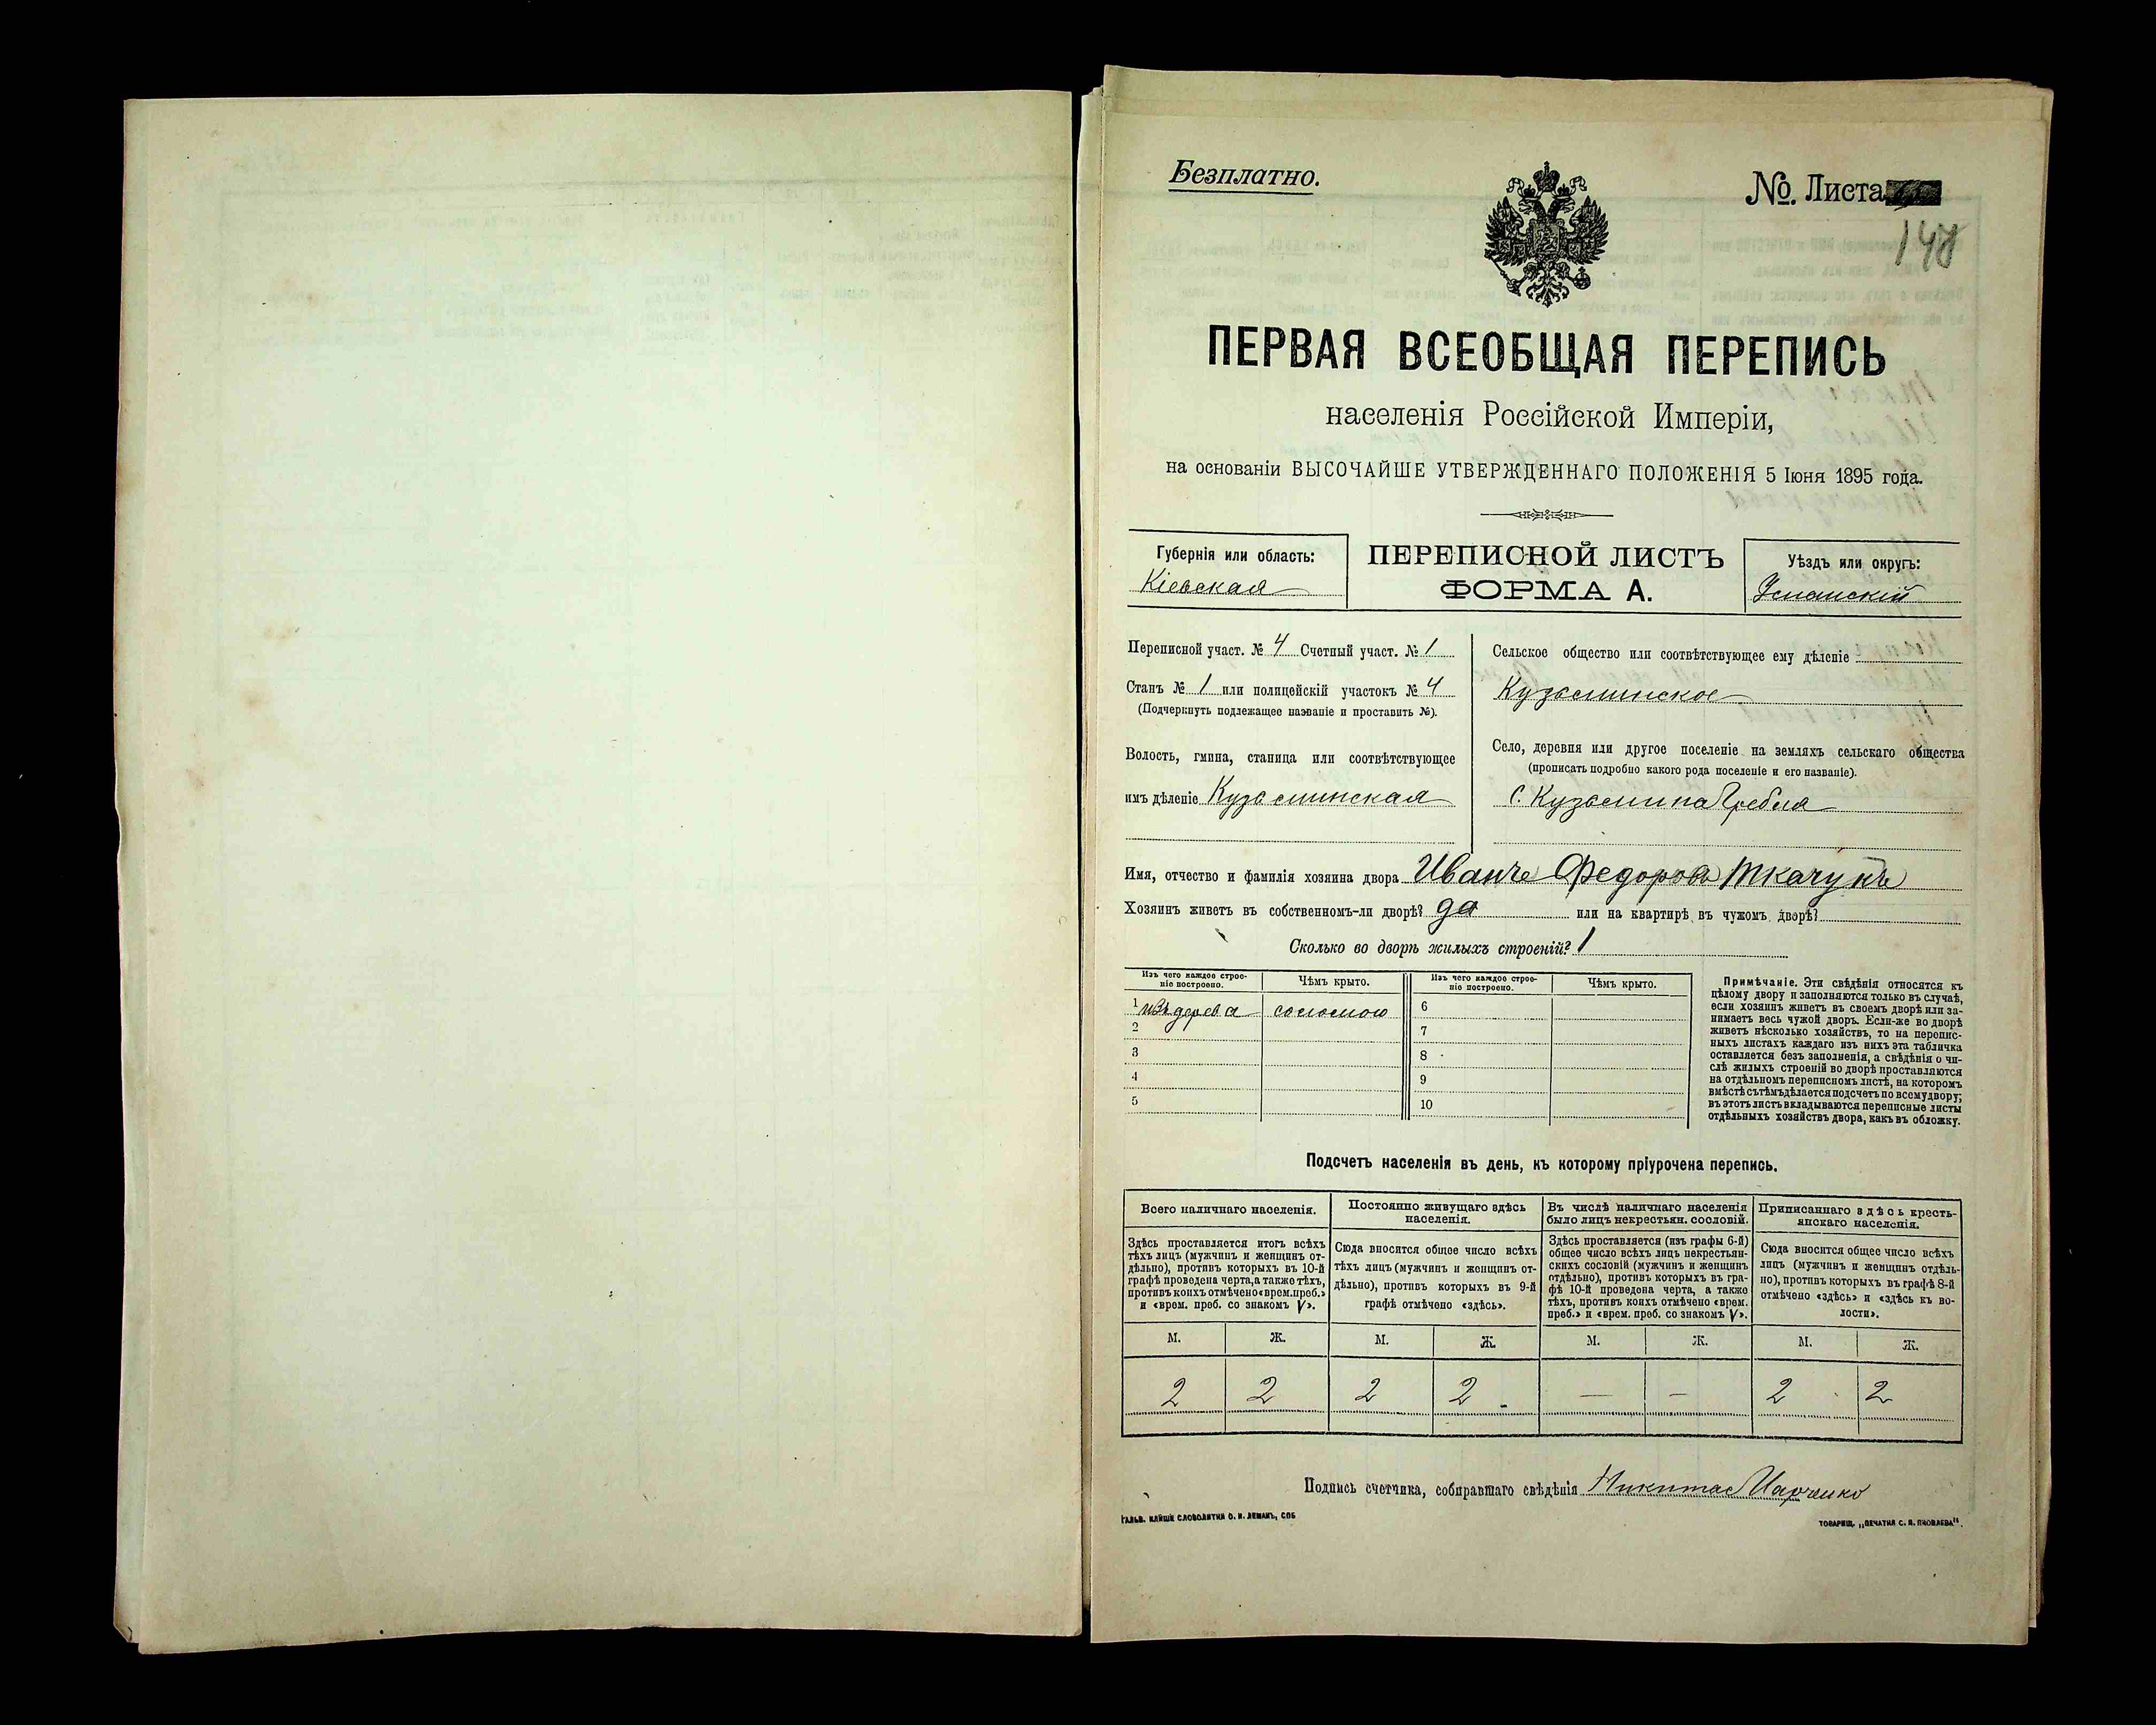 Безплатно.
№. Листа
148
ПЕРВАЯ ВСЕОБЩАЯ ПЕРЕПИСЬ
населенія Россійской Имперіи,
на основаніи ВЫСОЧАЙШЕ УТВЕРЖДЕННАГО ПОЛОЖЕНІЯ 5 Іюня 1895 года.
Губернія или область:
Кіевская
ПЕРЕПИСНОЙ ЛИСТЪ
ФОРМА А.
Уѣздъ или округъ:
Уманскій
Переписной участ. № 4 Счетный участ. № 1
Станъ № 1 или полицейскій участокъ № 4
(Подчеркнуть подлежащее названіе и проставить №).
Волость, гмина, станица или соотвѣтствующее
имъ дѣленіе Кузьминская
Сельское общество или соотвѣтствующее ему дѣленіе
Кузьминское
Село, деревня или другое поселеніе на земляхъ сельскаго общества
(прописать подробно какого рода поселеніе и его названіе).
с. Кузьмина Гребля
Имя, отчество и фамилія хозяина двора Иванъ Федоровъ Ткачукъ
Хозяинъ живетъ въ собственномъ-ли дворѣ? да или на квартирѣ въ чужомъ дворѣ?
Сколько во дворѣ жилыхъ строеній? 1
Изъ чего каждое строе-
ніе построено.
Чѣмъ крыто.
Изъ чего каждое строе-
ніе построено.
Чѣмъ крыто.
1 изъ дерева соломою 6
2 7
3 8
4 9
5 10
Примѣчаніе. Эти свѣдѣнія относятся къ
цѣлому двору и заполняются только въ случаѣ,
если хозяинъ живетъ въ своемъ дворѣ или за-
нимаетъ весь чужой дворъ. Если-же во дворѣ
живетъ нѣсколько хозяйствъ, то на перепис-
ныхъ листахъ каждаго изъ нихъ эта табличка
оставляется безъ заполненія, а свѣдѣнія о чи-
слѣ жилыхъ строеній во дворѣ проставляются
на отдѣльномъ переписномъ листѣ, на которомъ
вмѣстѣ съ тѣмъ дѣлается подсчетъ по всему двору;
въ этотъ листъ вкладываются переписные листы
отдѣльныхъ хозяйствъ двора, какъ въ обложку.
Подсчетъ населенія въ день, къ которому пріурочена перепись.
Всего наличнаго населенія.
Здѣсь проставляется итогъ всѣхъ
тѣхъ лицъ (мужчинъ и женщинъ от-
дѣльно), противъ которыхъ въ 10-й
графѣ проведена черта, а также тѣхъ,
противъ коихъ отмѣчено «врем. преб.»
и «врем. преб. со знакомъ V».
Постоянно живущаго здѣсь
населенія.
Сюда вносится общее число всѣхъ
тѣхъ лицъ (мужчинъ и женщинъ от-
дѣльно), противъ которыхъ въ 9-й
графѣ отмѣчено «здѣсь».
Въ числѣ наличнаго населенія
было лицъ некрестьян. сословій.
Здѣсь проставляется (изъ графы 6-й)
общее число всѣхъ лицъ некрестьян-
скихъ сословій (мужчинъ и женщинъ
отдѣльно), противъ которыхъ въ гра-
фѣ 10-й проведена черта, а также
тѣхъ, противъ коихъ отмѣчено «врем.
преб.» и «врем. преб. со знакомъ V».
Приписаннаго здѣсь кресть-
янскаго населенія.
Сюда вносится общее число всѣхъ
лицъ (мужчинъ и женщинъ отдѣль-
но), противъ которыхъ въ графѣ 8-й
отмѣчено «здѣсь» и «здѣсь къ во-
лости».
М. Ж. М. Ж. М. Ж. М. Ж.
2 2 2 2 — — 2 2
Подпись счетчика, собиравшаго свѣдѣнія Никита
ГАЛЬВ. КЛИШЕ СЛОВОЛИТНИ О. И. ЛЕМАНЪ, СПБ
ТОВАРИЩ. „ПЕЧАТНЯ С. П. ЯКОВЛЕВА“.